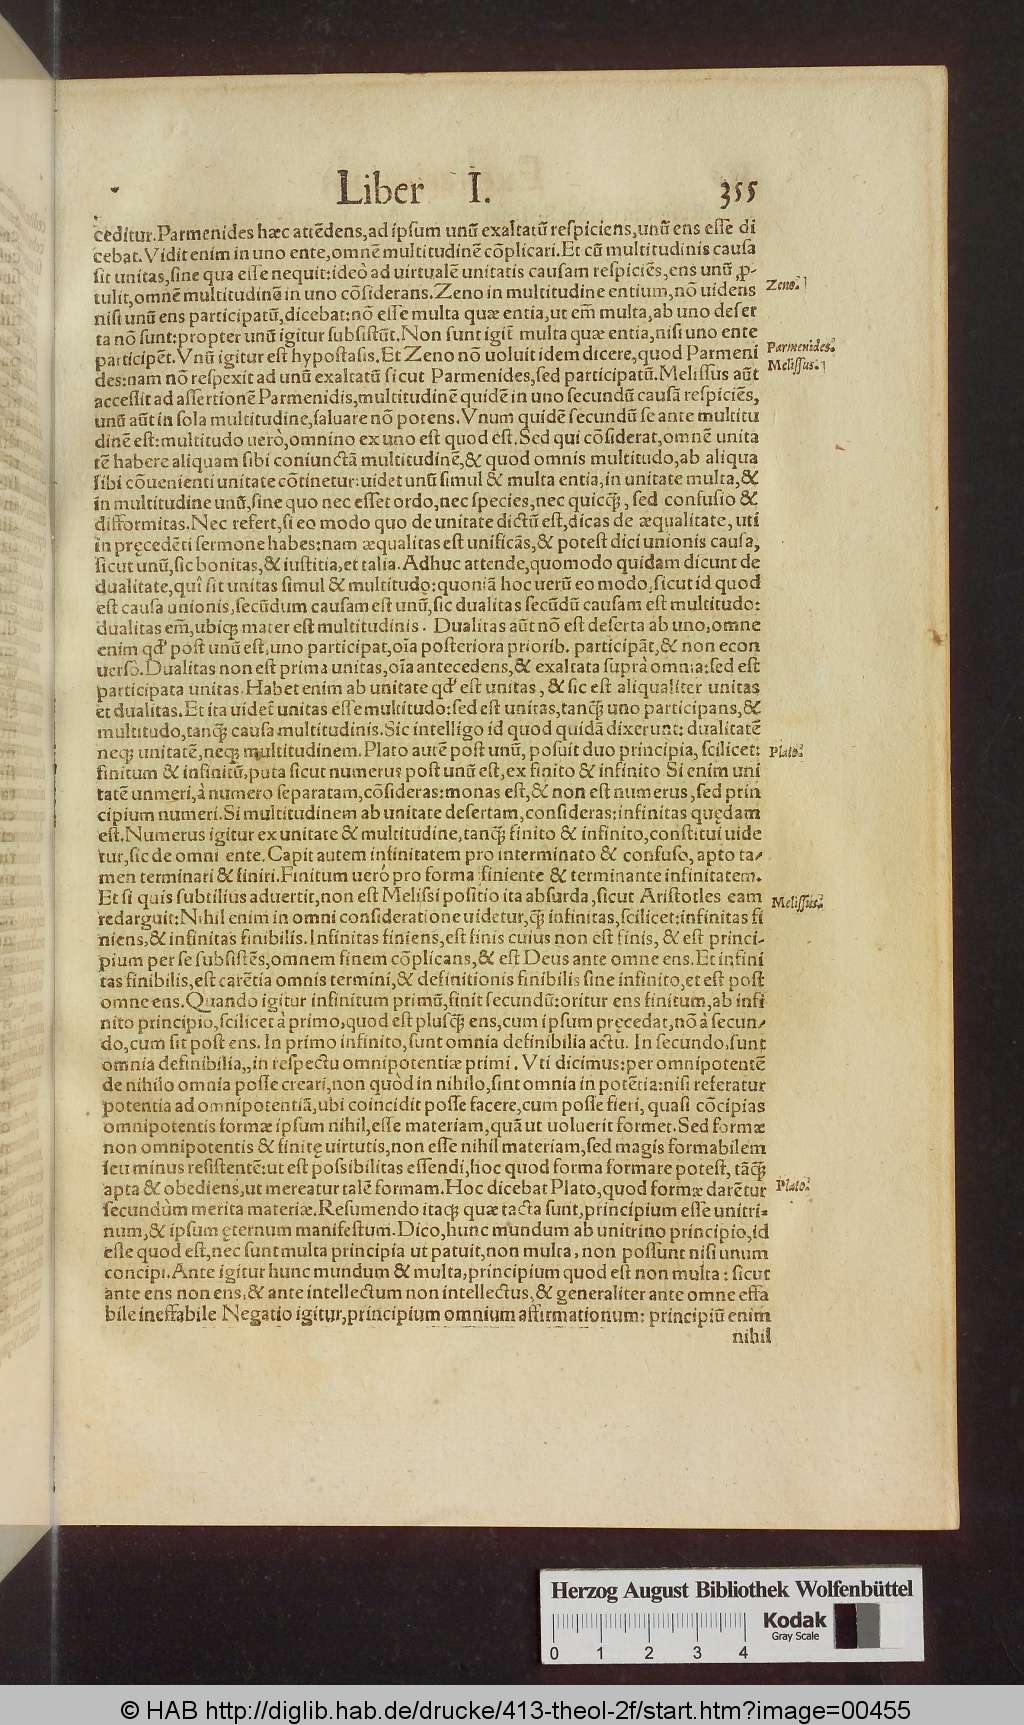 Liber I. 355
ceditur. Parmenides hæc attēdens, ad ipsum unū exaltatū respiciens, unū ens esse di
cebat. Vidit enim in uno ente, omnē multitudinē cōplicari. Et cū multitudinis causa
sit unitas, sine qua esse nequit: ideò ad uirtualē unitatis causam respiciēs, ens unū ꝓ-
tulit, omnē multitudinē in uno cōsiderans. Zeno in multitudine entium, nō uidens
Zeno.
nisi unū ens participatū, dicebat: nō esse multa quæ entia, ut em̄ multa, ab uno deser
ta nō sunt: propter unū igitur subsistūt. Non sunt igit̄ multa quæ entia, nisi uno ente
participēt. Vnū igitur est hypostasis. Et Zeno nō uoluit idem dicere, quod Parmeni
Parmenides.
des: nam nō respexit ad unū exaltatū sicut Parmenides, sed participatū. Melissus aūt
Melissus.
accessit ad assertionē Parmenidis, multitudinē quidē in uno secundū causā respiciēs,
unū aūt in sola multitudine, saluare nō potens. Vnum quidē secundū se ante multitu
dinē est: multitudo uerò, omnino ex uno est quod est. Sed qui cōsiderat, omnē unita
tē habere aliquam sibi coniunctā multitudinē, & quod omnis multitudo, ab aliqua
sibi cōuenienti unitate cōtinetur: uidet unū simul & multa entia, in unitate multa, &
in multitudine unū, sine quo nec esset ordo, nec species, nec quicq̄, sed confusio &
difformitas. Nec refert, si eo modo quo de unitate dictū est, dicas de æqualitate, uti
in pręcedēti sermone habes: nam æqualitas est unificās, & potest dici unionis causa,
sicut unū, sic bonitas, & iustitia, et talia. Adhuc attende, quomodo quidam dicunt de
dualitate, qui sit unitas simul & multitudo: quoniā hoc uerū eo modo, sicut id quod
est causa unionis, secūdum causam est unū, sic dualitas secūdū causam est multitudo:
dualitas em̄, ubiqꝫ mater est multitudinis. Dualitas aūt nō est deserta ab uno, omne
enim qđ post unū est, uno participat, oīa posteriora priorib. participāt, & non econ
uerso. Dualitas non est prima unitas, oīa antecedens, & exaltata supra omnia: sed est
participata unitas. Habet enim ab unitate qđ est unitas, & sic est aliqualiter unitas
et dualitas. Et ita uidet̄ unitas esse multitudo: sed est unitas, tancq̄ uno participans, &
multitudo, tancq̄ causa multitudinis. Sic intelligo id quod quidā dixerunt: dualitatē
neqꝫ unitatē, neqꝫ multitudinem. Plato autē post unū, posuit duo principia, scilicet:
Plato.
finitum & infinitū, puta sicut numerus post unū est, ex finito & infinito Si enim uni
tatē unmeri, à numero separatam, cōsideras: monas est, & non est numerus, sed prin
cipium numeri. Si multitudinem ab unitate desertam, consideras: infinitas quędam
est. Numerus igitur ex unitate & multitudine, tancq̄ finito & infinito, constitui uide
tur, sic de omni ente. Capit autem infinitatem pro interminato & confuso, apto ta-
men terminari & finiri. Finitum ueró pro forma finiente & terminante infinitatem.
Et si quis subtilius aduertit, non est Melissi positio ita absurda, sicut Aristotles eam
Melissus.
redarguit: Nihil enim in omni consideratione uidetur, q̄ infinitas, scilicet: infinitas fi
niens, & infinitas finibilis. Infinitas finiens, est finis cuius non est finis, & est princi-
pium per se subsistēs, omnem finem cōplicans, & est Deus ante omne ens. Et infini
tas finibilis, est carētia omnis termini, & definitionis finibilis sine infinito, et est post
omne ens. Quando igitur infinitum primū, finit secundū: oritur ens finitum, ab infi
nito principio, scilicet à primo, quod est plusq̄ ens, cum ipsum pręcedat, nō à secun-
do, cum sit post ens. In primo infinito, sunt omnia definibilia actu. In secundo, sunt
omnia definibilia, in respectu omnipotentiæ primi. Vti dicimus: per omnipotentē
de nihilo omnia posse creari, non quòd in nihilo, sint omnia in potētia: nisi referatur
potentia ad omnipotentiā, ubi coincidit posse facere, cum posse fieri, quasi cōcipias
omnipotentis formæ ipsum nihil, esse materiam, quā ut uoluerit formet. Sed formæ
non omnipotentis & finitę uirtutis, non esse nihil materiam, sed magis formabilem
seu minus resistentē: ut est possibilitas essendi, hoc quod forma formare potest, tācq̄
apta & obediens, ut mereatur talē formam. Hoc dicebat Plato, quod formæ darētur
Plato.
secundùm merita materiæ. Resumendo itaqꝫ quæ tacta sunt, principium esse unitri-
num, & ipsum ęternum manifestum. Dico, hunc mundum ab unitrino principio, id
esse quod est, nec sunt multa principia ut patuit, non multa, non possunt nisi unum
concipi. Ante igitur hunc mundum & multa, principium quod est non multa: sicut
ante ens non ens, & ante intellectum non intellectus, & generaliter ante omne effa
bile ineffabile Negatio igitur, principium omnium affirmationum: principiū enim
nihil
Herzog August Bibliothek Wolfenbüttel
Kodak
Gray Scale
0 1 2 3 4
© HAB http://diglib.hab.de/drucke/413-theol-2f/start.htm?image=00455